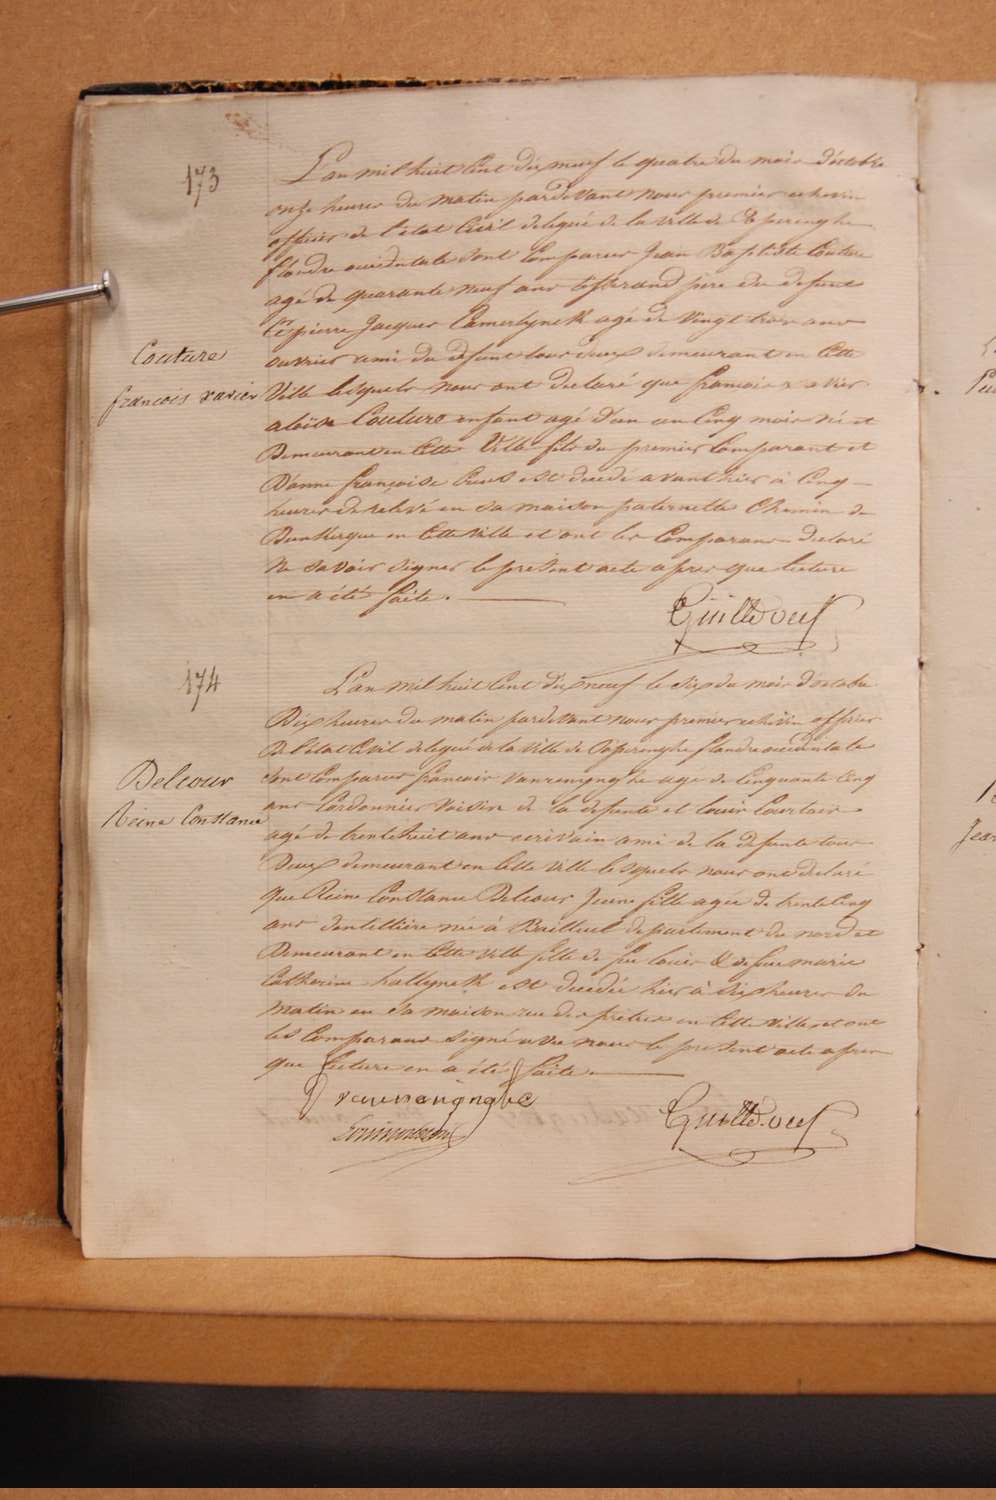 173
L'an mil huit Cent dix neuf le quatre du mois d'octobre
onze heures du matin pardevant nous premier echevin
officier de l'etat Civil delegué de la ville de Poperinghe
flandre occidentale sont Comparus Jean Baptiste Couture
agé de quarante neuf ans tisserand pere du defunt
Et pierre Jacques Camerlynck agé de vingt trois ans
ouvrier ami du defunt tous deux demeurant en Cette
Couture
francois xavier
Ville lesquels nous ont declaré que francois xavier
aloïse Couture enfant agé d'un an Cinq mois né et
Demeurant en Cette Ville fils du premier Comparant et
D'anne françoise est decedé avant hier à Cinq
heures de relevé en sa maison paternelle Chemin de
Dunkerque en Cette ville et ont les Comparans declaré
Ne savoir signer le présent acte apres que lecture
en a été faite.
174
L'an mil huit Cent dix neuf le six du mois d'octobre
Dix heures du matin pardevant nous premier echevin officier
De l'etat Civil delegué de la ville de Poperinghe flandre occidentale
sont Comparus francois vanrenynghe agé de Cinquante Cinq
Delcour
Reine Constance
ans Cordonnier Voisin de la defunte et louis
agé de trente huit ans ecrivain ami de la defunte tous
Deux demeurant en Cette Ville lesquels nous ont declaré
que Reine Constance Delcour Jeune fille agée de trente Cinq
ans dentellière née à Bailleul departement du nord et
Demeurant en Cette ville fille de feu louis & de feue marie
Catherine hallynck est decedée hier à dix heures du
Matin en sa maison rue des prêtres en Cette ville et ont
les Comparans signé avec nous le présent acte apres
que lecture en a été faite.